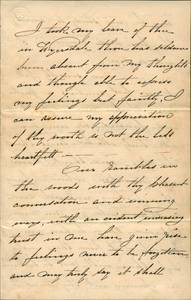 I took my leave of thee
in Wynsdale thou has seldom
been absent from my thoughts
and though able to express
my feelings but faintly, I
can assure my appreciation
of thy worth is not the less
heartfelt —
Our rambles in
the woods with thy pleasant
conversation and winning
ways, with an evident increasing
trust in me have given rise
to feelings never to be forgotten
and my lady say it shall